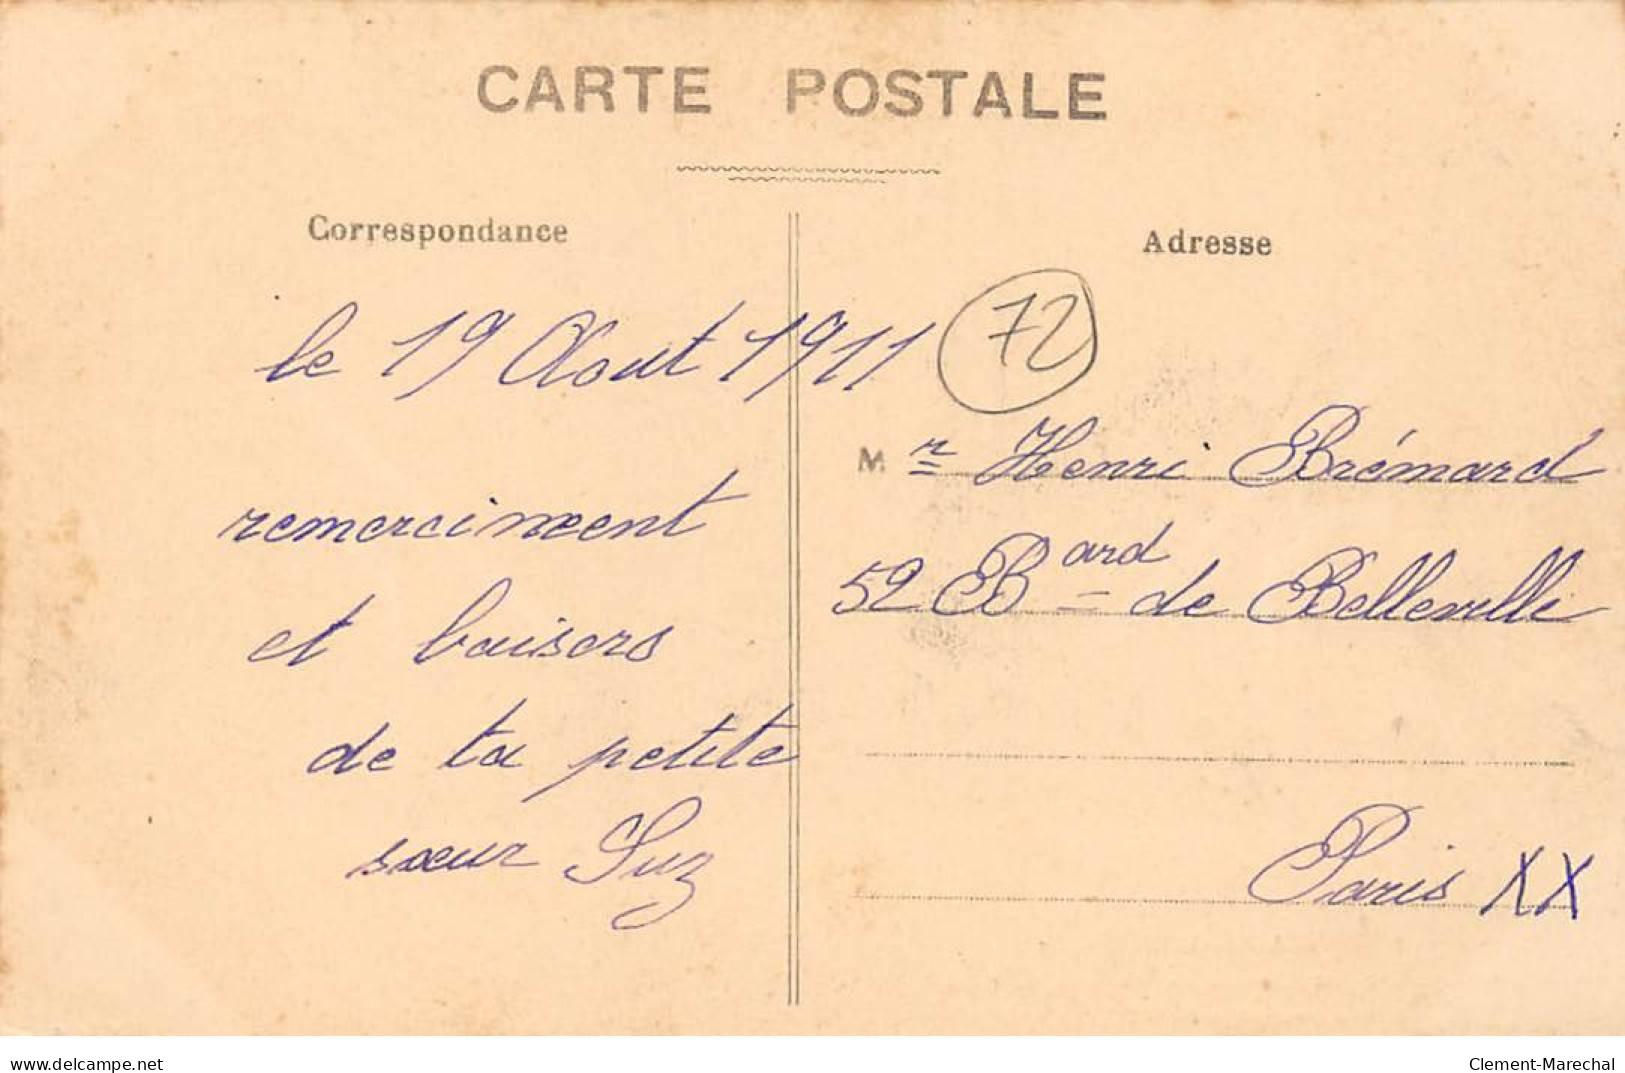 CARTE POSTALE
Correspondance
Adresse
le 19 Aout 1911
72
remerciment
et baisers
de ta petite
sœur Suz
M r Henri Brémard
52 Bard de Belleville
Paris XX
www.delcampe.net
Clement-Marechal